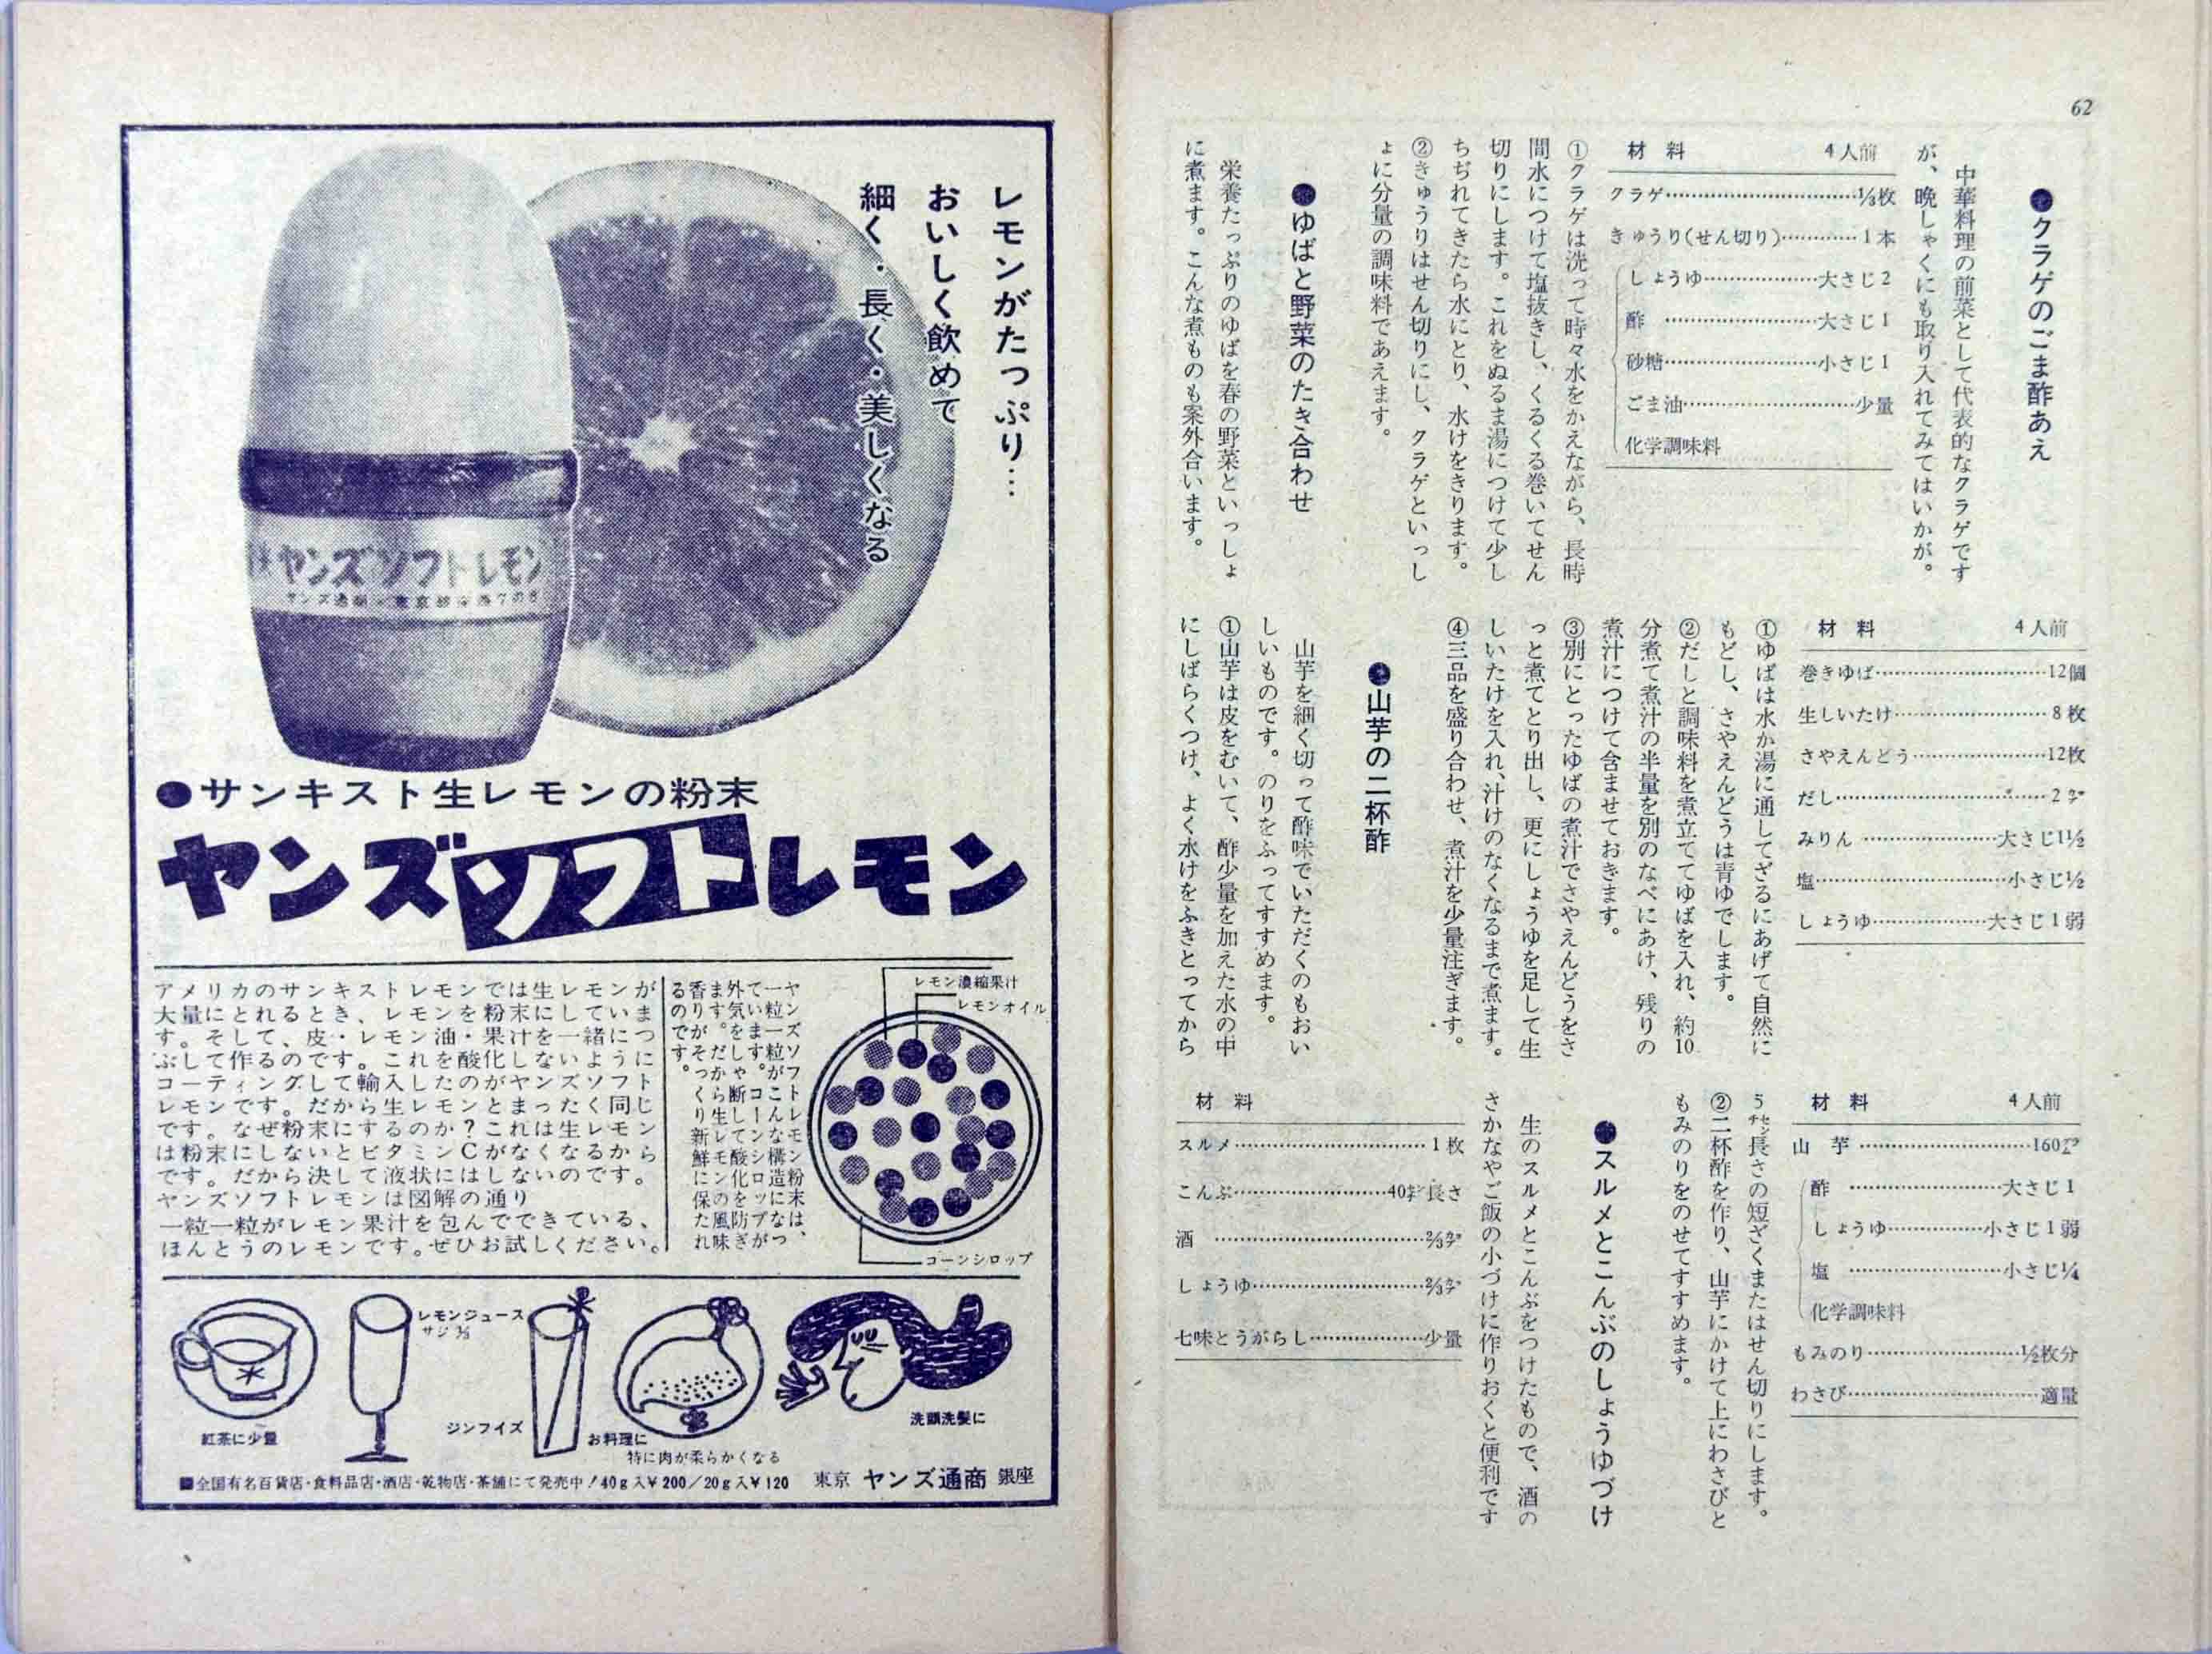 62
●クラゲのごま酢あえ
中華料理の前菜として代表的なクラゲです
が、晩しゃくにも取り入れてみてはいかが。
材料 4人前
クラゲ…………⅓枚
きゅうり(せん切り)…………1本
しょうゆ…………大さじ2
酢…………大さじ1
砂糖…………小さじ1
ごま油…………少量
化学調味料
①クラゲは洗って時々水をかえながら、長時
間水につけて塩抜きし、くるくる巻いてせん
切りにします。これをぬるま湯につけて少し
ちぢれてきたら水にとり、水けをきります。
②きゅうりはせん切りにし、クラゲといっし
ょに分量の調味料であえます。
●ゆばと野菜のたき合わせ
栄養たっぷりのゆばを春の野菜といっしょ
に煮ます。こんな煮ものも案外合います。
材料 4人前
巻きゆば…………12個
生しいたけ…………8枚
さやえんどう…………12枚
だし…………2㌍
みりん…………大さじ1½
塩…………小さじ½
しょうゆ…………大さじ1弱
①ゆばは水か湯に通してざるにあげて自然に
もどし、さやえんどうは青ゆでします。
②だしと調味料を煮立ててゆばを入れ、約10
分煮て煮汁の半量を別のなべにあけ、残りの
煮汁につけて含ませておきます。
③別にとったゆばの煮汁でさやえんどうをさ
っと煮てとり出し、更にしょうゆを足して生
しいたけを入れ、汁けのなくなるまで煮ます。
④三品を盛り合わせ、煮汁を少量注ぎます。
●山芋の二杯酢
山芋を細く切って酢味でいただくのもおい
しいものです。のりをふってすすめます。
①山芋は皮をむいて、酢少量を加えた水の中
にしばらくつけ、よく水けをふきとってから
材料 4人前
山芋…………160㌘
酢…………大さじ1
しょうゆ…………小さじ1弱
塩…………小さじ¼
化学調味料
もみのり…………½枚分
わさび…………適量
5㌢長さの短ざくまたはせん切りにします。
②二杯酢を作り、山芋にかけて上にわさびと
もみのりをのせてすすめます。
●スルメとこんぶのしょうゆづけ
生のスルメとこんぶをつけたもので、酒の
さかなやご飯の小づけに作りおくと便利です
材料
スルメ…………1枚
こんぶ…………40㌢長さ
酒…………⅔㌍
しょうゆ…………⅔㌍
七味とうがらし…………少量
レモンがたっぷり…
おいしく飲めて
細く・長く・美しくなる
ヤンズソフトレモン
●サンキスト生レモンの粉末
ヤンズソフトレモン
アメリカのサンキストレモンでは生レモンが
大量にとれるとき、レモンを粉末にしていま
す。そして、皮・レモン油・果汁を一緒につ
ぶして作るのです。これを酸化しないように
コーティングして輸入したのがヤンズソフト
レモンです。だから生レモンとまったく同じ
です。なぜ粉末にするのか？これは生レモン
は粉末にしないとビタミンCがなくなるから
です。だから決して液状にはしないのです。
ヤンズソフトレモンは図解の通り
一粒一粒がレモン果汁を包んでできている、
ほんとうのレモンです。ぜひお試しください。
ヤンズソフトレモン粉末は、
一粒一粒がこんな構造になっ
ています。コーンシロップが
外気をしゃ断して酸化を防ぎ
ます。だから生レモンの風味
香りがそっくり新鮮に保たれ
るのです。
レモン濃縮果汁
レモンオイル
コーンシロップ
紅茶に少量
レモンジュース
サジ⅓
ジンフイズ
お料理に
特に肉が柔らかくなる
洗顔洗髪に
■全国有名百貨店・食料品店・酒店・乾物店・茶舗にて発売中！40g入¥200／20g入¥120 東京 ヤンズ通商 銀座